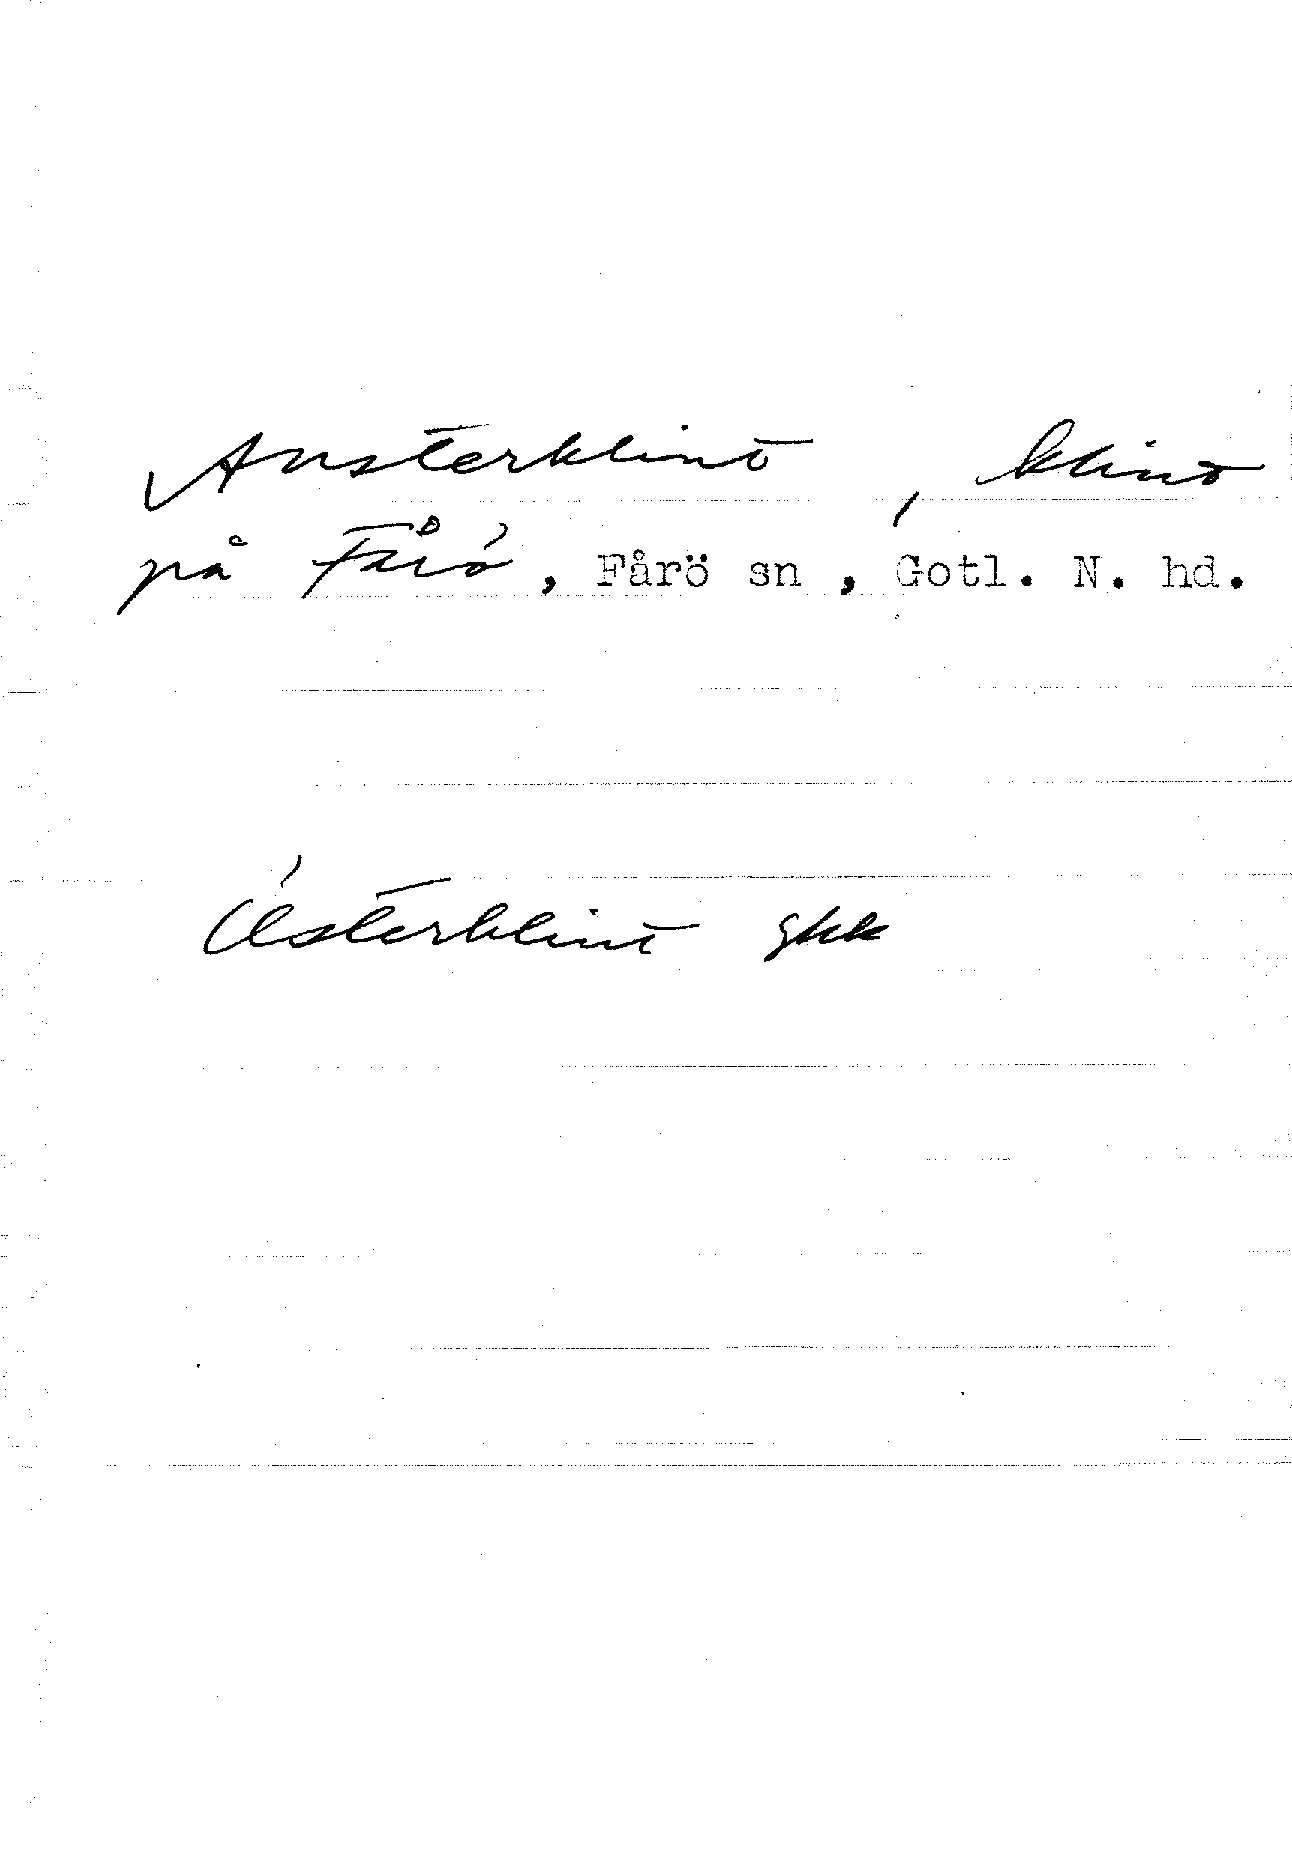 Austerklint , klint
på Fårö , Fårö sn , Gotl. N. hd.
Österklint gkk